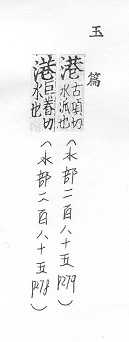 玉篇
港 古項切 水派也 (水部二百八十五 P279)
港 巨眷切 水也 (水部二百八十五 P278)